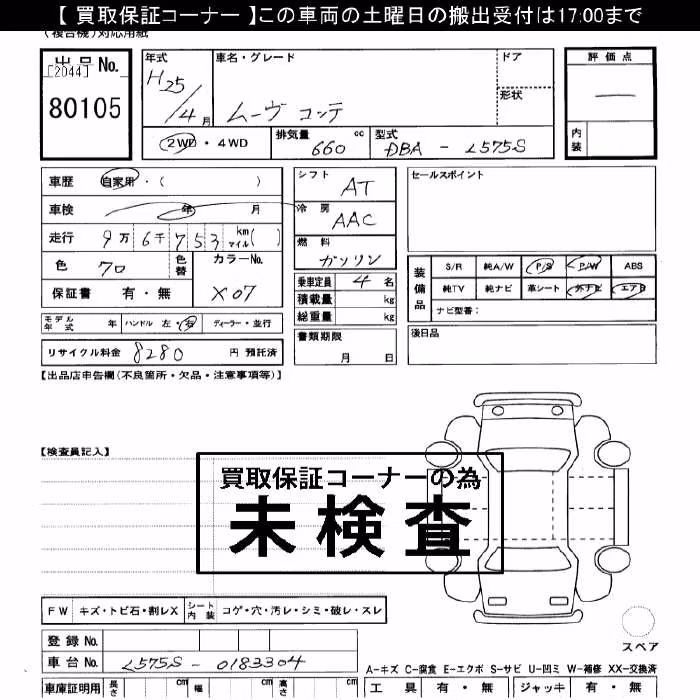 【 買取保証コーナー 】この車両の土曜日の搬出受付は17:00まで
(複合機)対応用紙
出品No.
[2044]
80105
年式
H25/4月
車名・グレード
ムーヴ コンテ
ドア
形状
評価点
内装
2WD・4WD
排気量 660 cc
型式 DBA - L575S
車歴 自家用・( )
車検 年 月
走行 9万6千753 km マイル( )
色 クロ 色替
カラーNo. X07
保証書 有・無
シフト AT
冷房 AAC
燃料 ガソリン
乗車定員 4名
積載量 kg
総重量 kg
書類期限
月 日
セールスポイント
装備品
S/R 純A/W P/S P/W ABS
純TV 純ナビ 革シート 外ナビ エアB
ナビ型番:
後日品
モデル年式 年 ハンドル 左・右 ディーラー・並行
リサイクル料金 8280 円 預託済
【出品店申告欄(不良箇所・欠品・注意事項等)】
【検査員記入】
買取保証コーナーの為
未検査
FW キズ・トビ石・割レX
シート内装 コゲ・穴・汚レ・シミ・破レ・スレ
登録No.
車台No. L575S-0183304
車庫証明用 長さ cm 幅 cm 高さ cm
スペア
A-キズ C-腐食 E-エクボ S-サビ U-凹ミ W-補修 XX-交換済
工具 有・無 ジャッキ 有・無